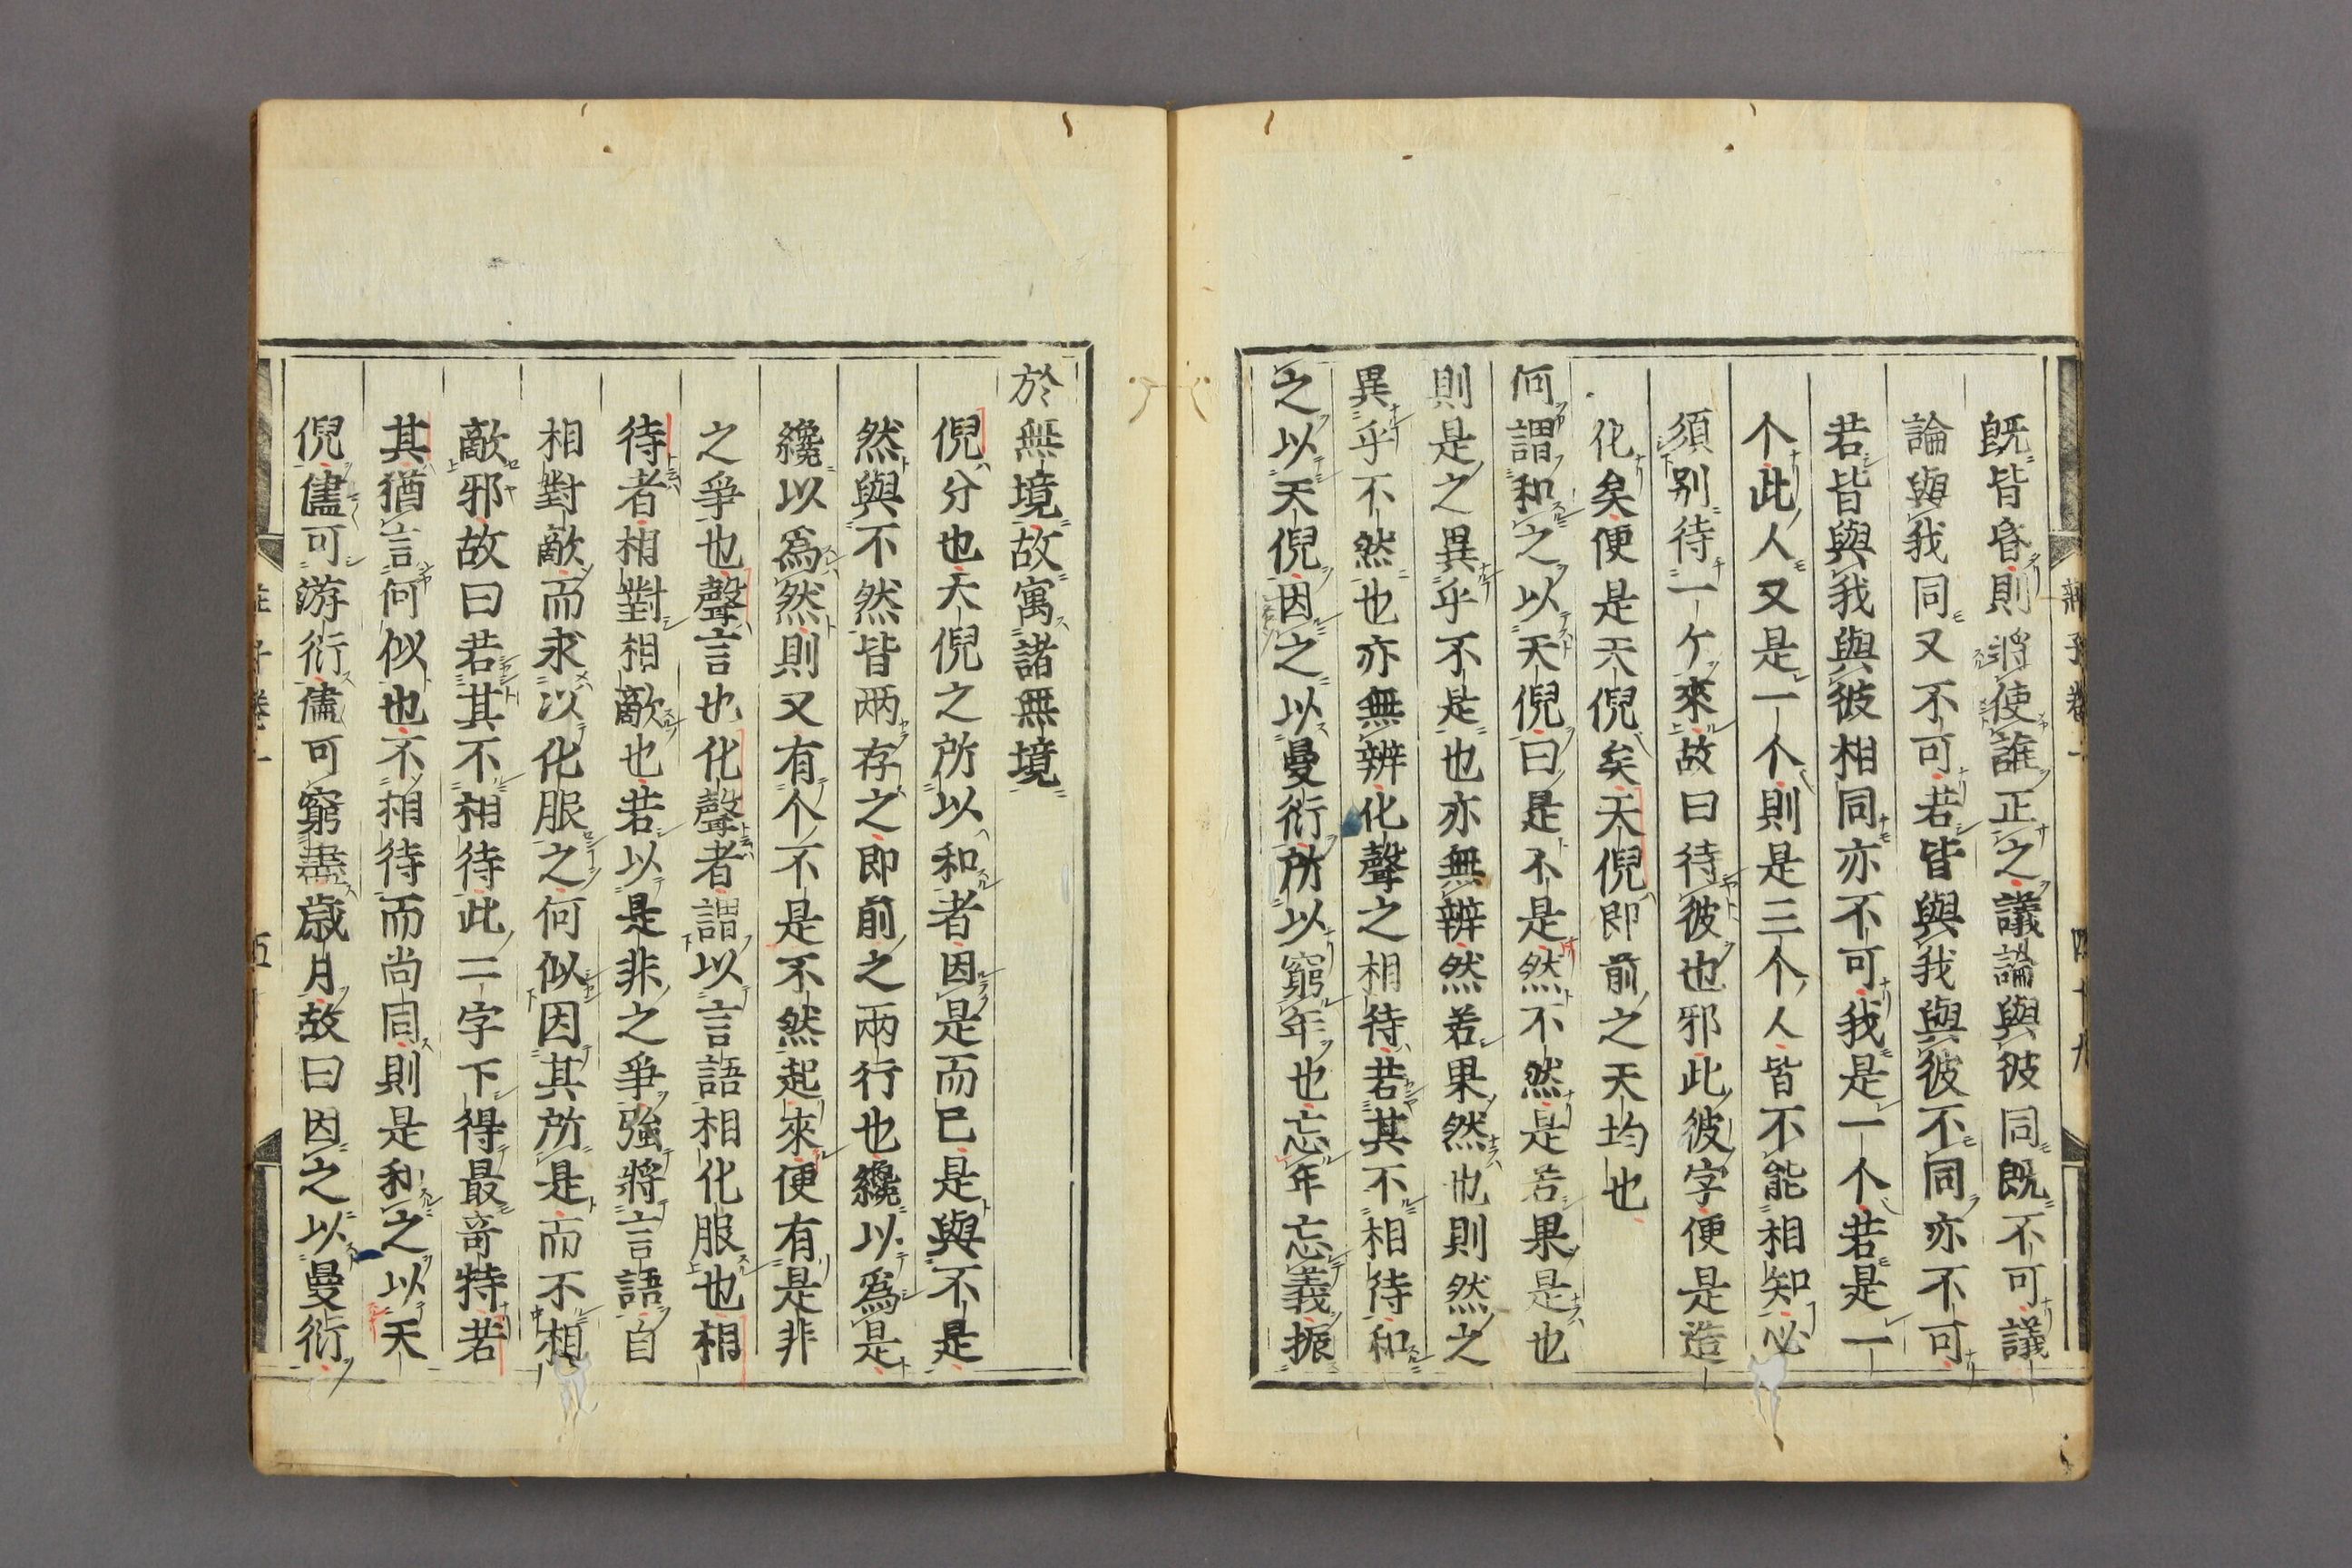 既皆昏則將使誰正之議論與彼同既不可議
論與我同又不可若皆與我與彼不同亦不可
若皆與我與彼相同亦不可我是一个若是一
个此人又是一个則是三个人皆不能相知必
須别待一ケ來故曰待彼也邪此彼字便是造
化矣便是天倪矣天倪即前之天均也
何謂和之以天倪曰是不是然不然是若果是也
則是之異乎不是也亦無辨然若果然也則然之
異乎不然也亦無辨化聲之相待若其不相待和
之以天倪因之以曼衍所以窮年也忘年忘義振
於無境故寓諸無境
倪分也天倪之所以和者因是而已是與不是
然與不然皆两存之即前之兩行也纔以爲是
纔以爲然則又有个不是不然起來便有是非
之爭也聲言也化聲者謂以言語相化服也相
待者相對相敵也若以是非之爭強將言語自
相對敵而求以化服之何似因其所是而不相
敵邪故曰若其不相待此二字下得最竒特若
其猶言何似也不相待而尚同則是和之以天
倪儘可游衍儘可窮盡歲月故曰因之以曼衍